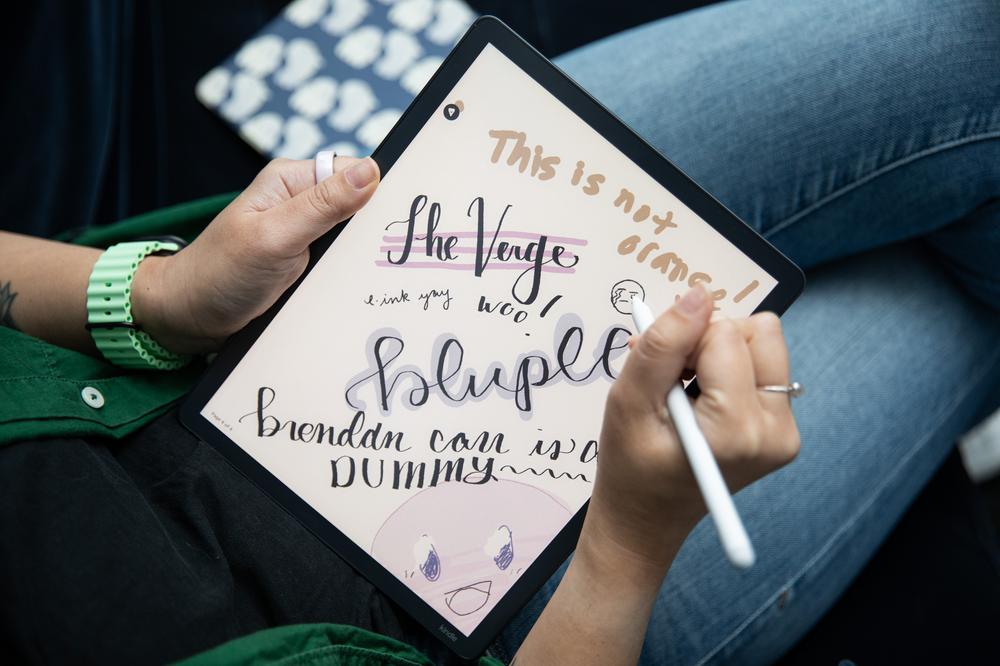 This is not
orange!
The Verge
e-ink yay woo!
blupll
brendan carr is a
DUMMY
kindle